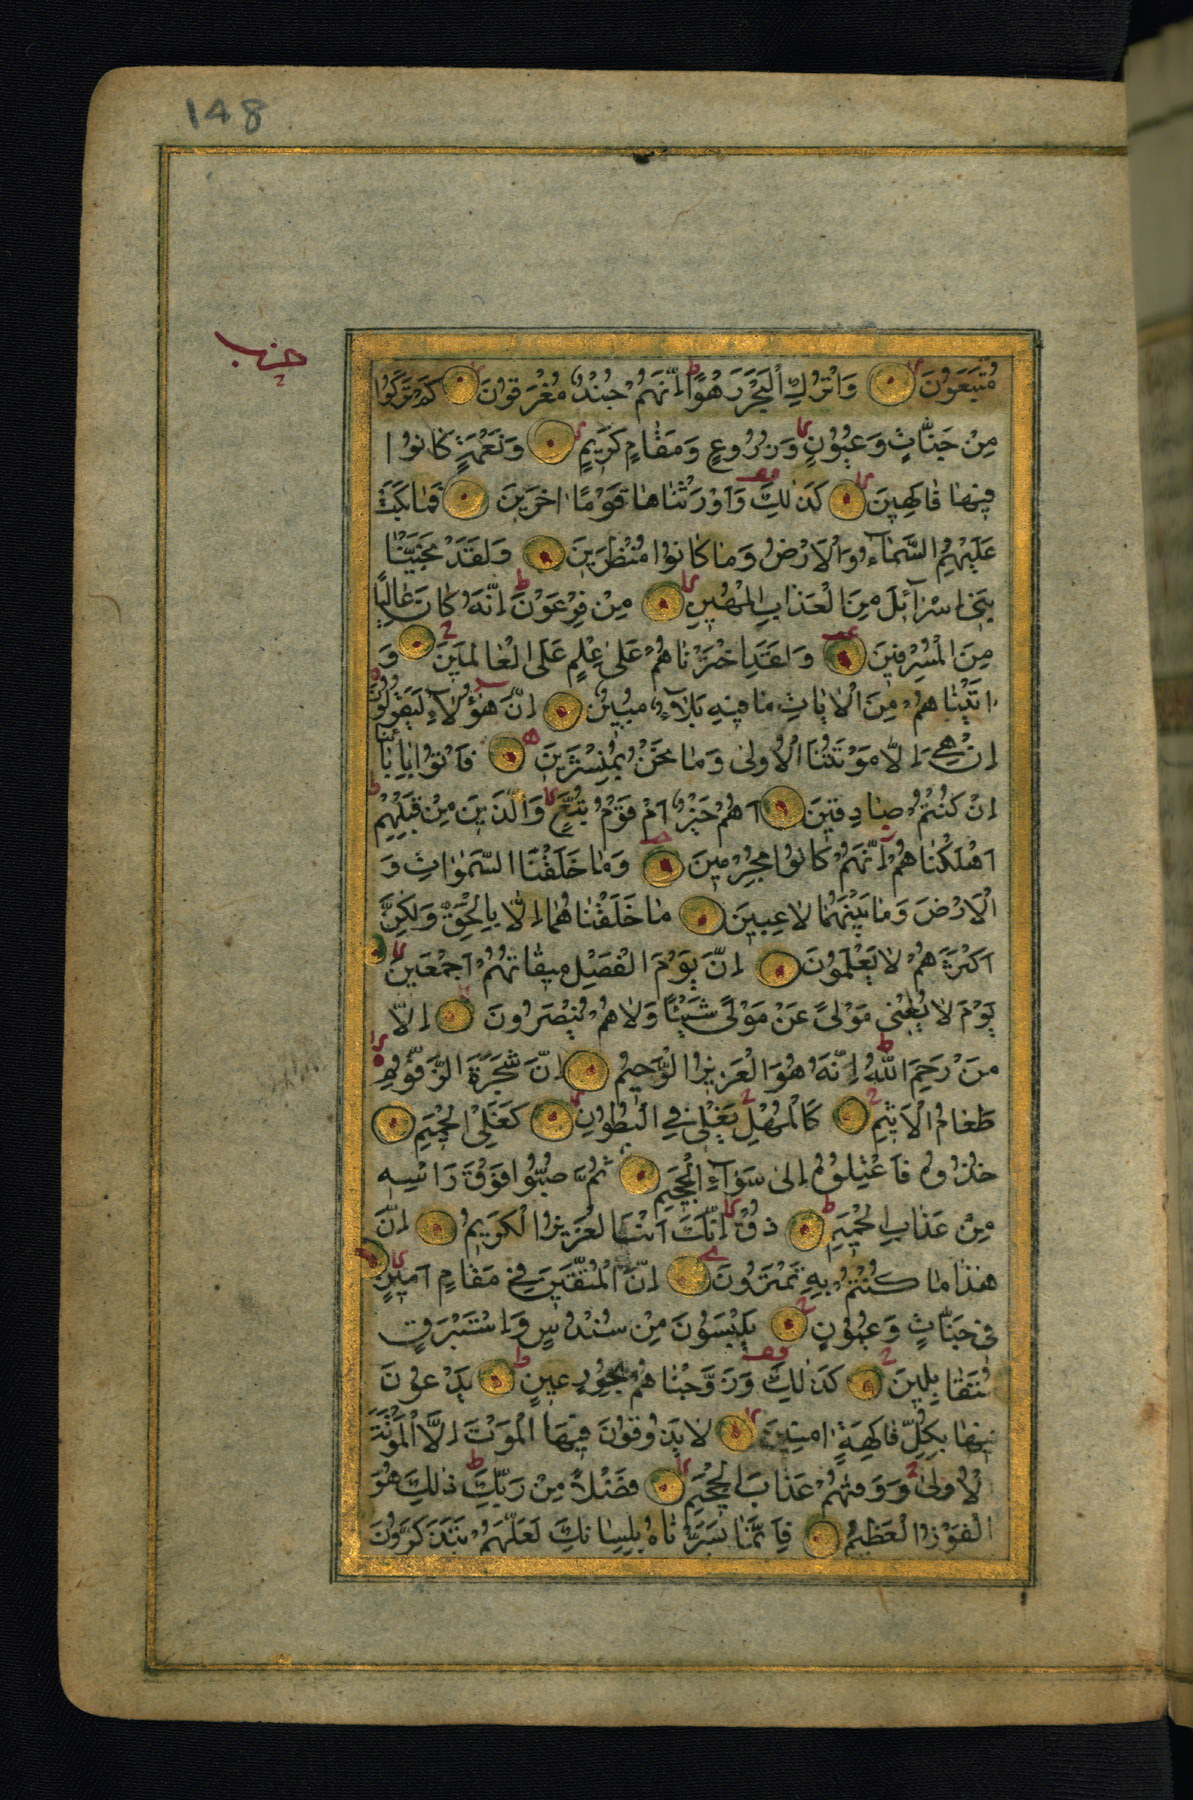 148
حزب
مُتَّبَعُونَ وَاتْرُكِ الْبَحْرَ رَهْوًا اِنَّهُمْ جُنْدٌ مُغْرَقُونَ كَمْ تَرَكُوا
مِنْ جَنَّاتٍ وَعُيُونٍ وَزُرُوعٍ وَمَقَامٍ كَرِيمٍ وَنَعْمَةٍ كَانُوا
فِيهَا فَاكِهِينَ كَذٰلِكَ وَاَوْرَثْنَاهَا قَوْمًا اٰخَرِينَ فَمَا بَكَتْ
عَلَيْهِمُ السَّمَاۤءُ وَالْاَرْضُ وَمَا كَانُوا مُنْظَرِينَ وَلَقَدْ نَجَّيْنَا
بَنِي اِسْرَاۤئِلَ مِنَ الْعَذَابِ الْمُهِينِ مِنْ فِرْعَوْنَ اِنَّهُ كَانَ عَالِيًا
مِنَ الْمُسْرِفِينَ وَلَقَدِ اخْتَرْنَاهُمْ عَلٰى عِلْمٍ عَلَى الْعَالَمِينَ وَ
اٰتَيْنَاهُمْ مِنَ الْاٰيَاتِ مَا فِيهِ بَلَاۤءٌ مُبِينٌ اِنَّ هٰؤُلَاۤءِ لَيَقُولُونَ
اِنْ هِيَ اِلَّا مَوْتَتُنَا الْاُولٰى وَمَا نَحْنُ بِمُنْشَرِينَ فَاْتُوا بِاٰبَاۤئِنَا
اِنْ كُنْتُمْ صَادِقِينَ اَهُمْ خَيْرٌ اَمْ قَوْمُ تُبَّعٍ وَالَّذِينَ مِنْ قَبْلِهِمْ
اَهْلَكْنَاهُمْ اِنَّهُمْ كَانُوا مُجْرِمِينَ وَمَا خَلَقْنَا السَّمٰوَاتِ وَ
الْاَرْضَ وَمَا بَيْنَهُمَا لَاعِبِينَ مَا خَلَقْنَاهُمَا اِلَّا بِالْحَقِّ وَلٰكِنَّ
اَكْثَرَهُمْ لَا يَعْلَمُونَ اِنَّ يَوْمَ الْفَصْلِ مِيقَاتُهُمْ اَجْمَعِينَ
يَوْمَ لَا يُغْنِي مَوْلًى عَنْ مَوْلًى شَيْئًا وَلَا هُمْ يُنْصَرُونَ اِلَّا
مَنْ رَحِمَ اللّٰهُ اِنَّهُ هُوَ الْعَزِيزُ الرَّحِيمُ اِنَّ شَجَرَةَ الزَّقُّومِ
طَعَامُ الْاَثِيمِ كَالْمُهْلِ يَغْلِي فِي الْبُطُونِ كَغَلْيِ الْحَمِيمِ
خُذُوهُ فَاعْتِلُوهُ اِلٰى سَوَاۤءِ الْجَحِيمِ ثُمَّ صُبُّوا فَوْقَ رَاْسِهِ
مِنْ عَذَابِ الْحَمِيمِ ذُقْ اِنَّكَ اَنْتَ الْعَزِيزُ الْكَرِيمُ اِنَّ
هٰذَا مَا كُنْتُمْ بِهِ تَمْتَرُونَ اِنَّ الْمُتَّقِينَ فِي مَقَامٍ اَمِينٍ
فِي جَنَّاتٍ وَعُيُونٍ يَلْبَسُونَ مِنْ سُنْدُسٍ وَاِسْتَبْرَقٍ
مُتَقَابِلِينَ كَذٰلِكَ وَزَوَّجْنَاهُمْ بِحُورٍ عِينٍ يَدْعُونَ
فِيهَا بِكُلِّ فَاكِهَةٍ اٰمِنِينَ لَا يَذُوقُونَ فِيهَا الْمَوْتَ اِلَّا الْمَوْتَةَ
الْاُولٰى وَوَقٰيهُمْ عَذَابَ الْجَحِيمِ فَضْلًا مِنْ رَبِّكَ ذٰلِكَ هُوَ
الْفَوْزُ الْعَظِيمُ فَاِنَّمَا يَسَّرْنَاهُ بِلِسَانِكَ لَعَلَّهُمْ يَتَذَكَّرُونَ